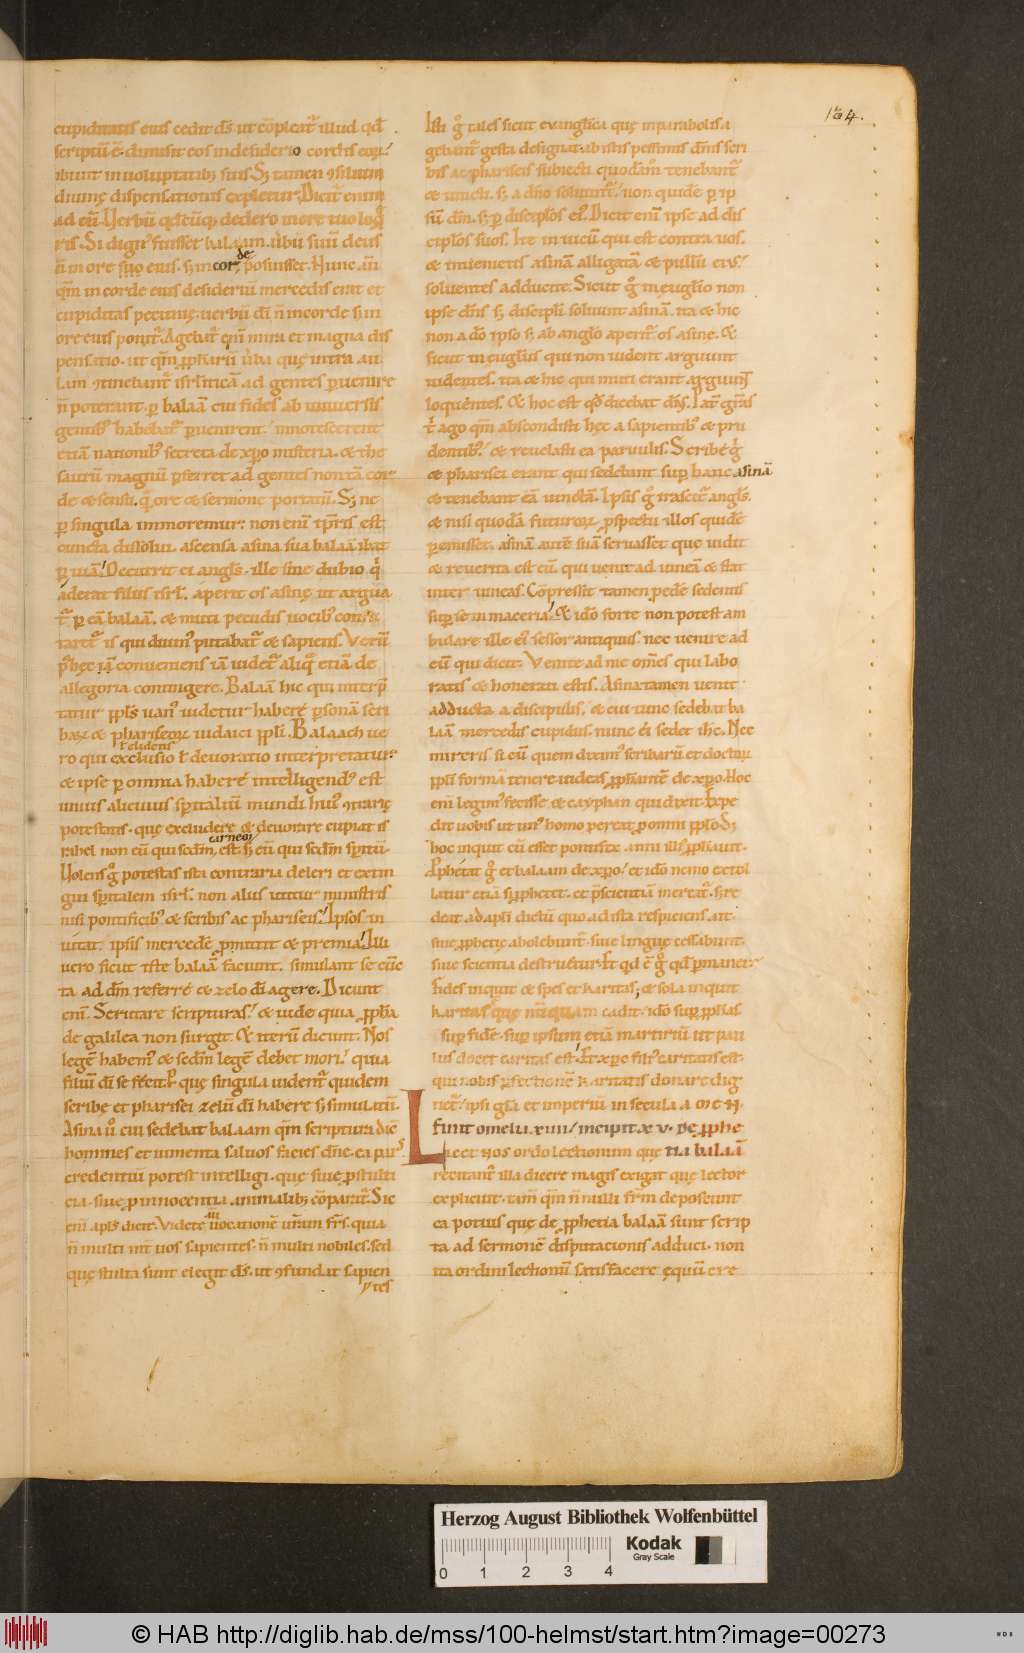 164.
cupiditatis eius cedit ds̄. ut cōpleat᷑ illud qd̄
scriptū ē. dimisit eos in desiderio cordis eoꝝ
ibunt in voluptatibꝫ suis. Sꝫ tamen ꝯsilium
diuinę dispensationis expletur. Dicit᷑ enim
ad eū. Verbū qđcūqꝫ dedero in ore tuo loq̄
ris. Si dign᷒ fuisset balaam. ūbū suū deus
n̄ in ore suo eius. sꝫ in corde posuisset. Nunc. aū
qm̄ in corde eius desideriū mercedis erat et
cupiditas pecunię. uerbū dī n̄ in corde sꝫ in
ore eius ponit᷑. Agebat᷑ enī mira et magna dis
pensatio. ut qm̄ ꝓphaꝝ ūba quę intra au
lam ꝯtinebant᷑ isrl̄iticā. ad gentes ꝑuenire
n̄ poterant. ꝑ balaā cui fides ab uniuersis
gentibꝫ habebat᷑ ꝑuenirent. innotescerent
etiā nationibꝫ secreta de xp̄o misteria. & the
saurū magnū ꝑferret ad gentes non tā cor
de & sensu. qͣm ore & sermone portatū. Sꝫ ne
ꝑ singula immoremur: non enī tp̄ris est
cuncta dissolui. ascensa asina sua balaā ibat
ꝑ uiā. Occurrit ei angl̄s. ille sine dubio qͥ
aderat filiis isrl̄. aperit os asinę ut argua
t᷑ ꝑ eā balaā. & muti pecudis uocibꝫ confu
taret᷑ is qui diuin᷒ putabat᷑ & sapiens. Verū
pͦ hęc iā conueniens iā uidet᷑ aliqͥd etiā de
allegoria contingere. Balaā hic qui interp̄
tatur ppl̄s uan᷒ uidetur habere ꝑsonā scri
baꝝ & phariseoꝝ iudaici ppl̄i. Balaach ue
ł eludens
ro qui exclusio ł deuoratio interpretatur.
& ipse ꝑ omnia habere intelligend᷒ est
unius alicuius spitaliū mundi hui᷒ ꝯtrarię
potestatis. quę excludere & deuorare cupiat is
carneos
rahel non eū qui scdm̄ est. sꝫ eū qui scdm̄ spm̄.
Volens gͦ potestas ista contraria deleri et extin
gui spitalem isrl̄. non aliis utitur ministris
nisi pontificibꝫ & scribis ac phariseis. Ipsos in
uitat. ipsis mercedē ꝓmittit & premia. Illi
uero sicut iste balaā faciunt. simulant se cūc
ta ad dm̄ referre & zelo dī agere. Dicunt
enī. Scrutare scripturas. & uide quia ꝓph̄a
de galilea non surgit. & iterū dicunt. Nos
legē habem᷒ & scdm̄ legē debet mori. quia
filiū dī se fecit. quę singula uident᷑ quidem
scribę et pharisei zelū dī habere sꝫ simulatū.
Asina ū cui sedebat balaam qm̄ scriptura dic̄
homines et iumenta saluos facies dn̄e.
credentiū potest intelligi. quę siue ꝓ stulti
cia. siue ꝓ innocentia. animalibꝫ cōparat᷑. Sic
enī apl̄s dicit. Videte uocationē uram fr̄s. quia
n̄ multi int̄ uos sapientes. n̄ multi nobiles. sed
quę stulta sunt elegit ds̄. ut ꝯfundat sapien
tes
Isti gͦ tales sicut evangl̄ica quę in parabolis a
gebant᷑ gesta designāt. ab istis pessimis dn̄is scri
bis ac phariseis subiecti quodāmͦ tenebant᷑
& uincti. sꝫ a dn̄o soluunt᷑. non quidē ꝑ ip
sū dm̄. sꝫ ꝑ discipl̄os ei᷒. Dicit enī ipse ad dis
cipl̄os suos. Ite in uicū qui est contra uos.
& inuenietis asinā alligatā & pullū ei᷒.
soluentes adducite. Sicut gͦ in euglio non
ipse dn̄s sꝫ discipl̄i soluunt asinā. ita & hic
non a dō ipso sꝫ ab anglo aperit᷑ os asine. &
sicut in eugliis qui non uident arguunt
uidentes. ita & hic qui muti erant arguunt
loquentes. & hoc est qd̄ dicebat dn̄s. Pat̄ gr̄as
tͥ ago qm̄ abscondisti hęc a sapientibꝫ & pru
dentibꝫ. & reuelasti ea paruulis. Scribę gͥ
& pharisei erant qui sedebant suꝑ hanc asinā
& tenebant eā uinctā. Ipsis gͦ irascet᷑ angl̄s.
& nisi quodā futuroꝝ ꝓspectu illos quidē
ꝑemisset. asinā autē suā seruasset quę uidit
& reuerita est eū. qui uenit ad uineā & stat
inter uineas. Cōpressit tamen pedē sedentis
suꝑ se in maceria. & idō forte non potest am
bulare ille ei᷒ sessor antiquus. nec uenire ad
eū qui dicit. Venite ad me om̄es qui labo
ratis & honerati estis. Asina tamen uenit
adducta a discipulis. & cui tunc sedebat ba
laā mercedis cupidus. nunc ei sedet ih̄c. Nec
mireris si eū quem dixim᷒ scribarū et doctoꝝ
ppl̄i formā tenere uideas ꝓph̄ante de xp̄o. Hoc
enī legim᷒ fecisse & cayphan qui dixit. Expe
dit uobis ut un᷒ homo pereat ꝓ omni ppl̄o. Sꝫ
hoc inquit cū esset pontifex anni illi᷒ ꝓph̄auit.
Ꝓphetat gͦ et balaam de xp̄o. et idō nemo extol
latur etiā si ꝓphetet. et p̄scientiā mereat᷑. sꝫ re
deat ad apl̄i dictū quo ad ista respiciens ait.
siue ꝓphetię abolebunt᷑. siue linguę cessabunt.
siue scientia destruet᷑. Et qd̄ ē gͦ qd̄ ꝑmanet.
Fides inquit & spes et karitas; & sola inquit
karitas quę nūquam cadit. idō suꝑ ꝓphīas
suꝑ fidē. suꝑ ipsum etiā martiriū ut pau
lus docet caritas est. Et xp̄o filio caritatis est.
qui nobis ꝑfectionē karitatis donare dig
net᷑. ipsi gl̄a et imperiū in secula. AMEN.
Finit omelia. xiiii. incipit. xv. de ꝓphe
tia balaā
Licet nos ordo lectionum quę
recitant᷑ illa dicere magis exigat quę lector
explicuit. tam̄ qm̄ n̄nulli fr̄m deposcunt
ea potius quę de ꝓphetia balaā sunt scrip
ta ad sermonē disputacionis adduci. non
ita ordini lectionū satisfacere ęquū ere
Herzog August Bibliothek Wolfenbüttel
Kodak
Gray Scale
0 1 2 3 4
© HAB http://diglib.hab.de/mss/100-helmst/start.htm?image=00273